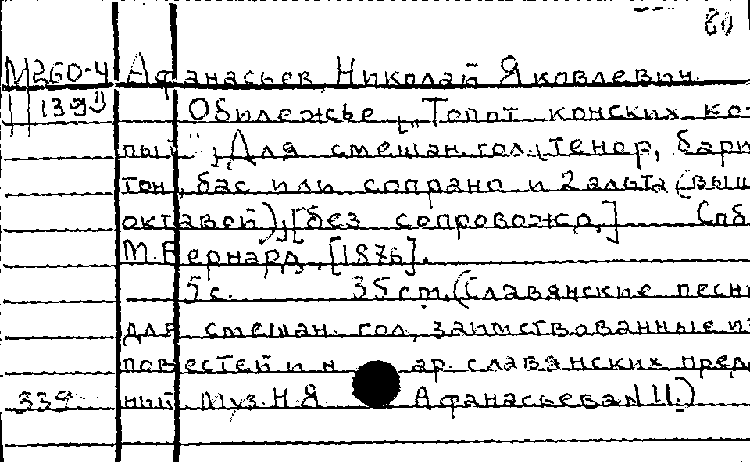 80
М260-4 Афанасьев, Николай Яковлевич.
139 Обилежье, „Топот конских ко-
пыт". Для смешан. гол. тенор, бари
тон, бас или сопрано и 2 альта (выш
октавой), [без сопровожд.] Спб
М. Бернард, [1876].
5 с. 35 cm. (Славянские песни
для смешан. гол, заимствованные из
повестей и нар. славянских пред
339 ний Муз. Н.Я Афанасьева N 11.)